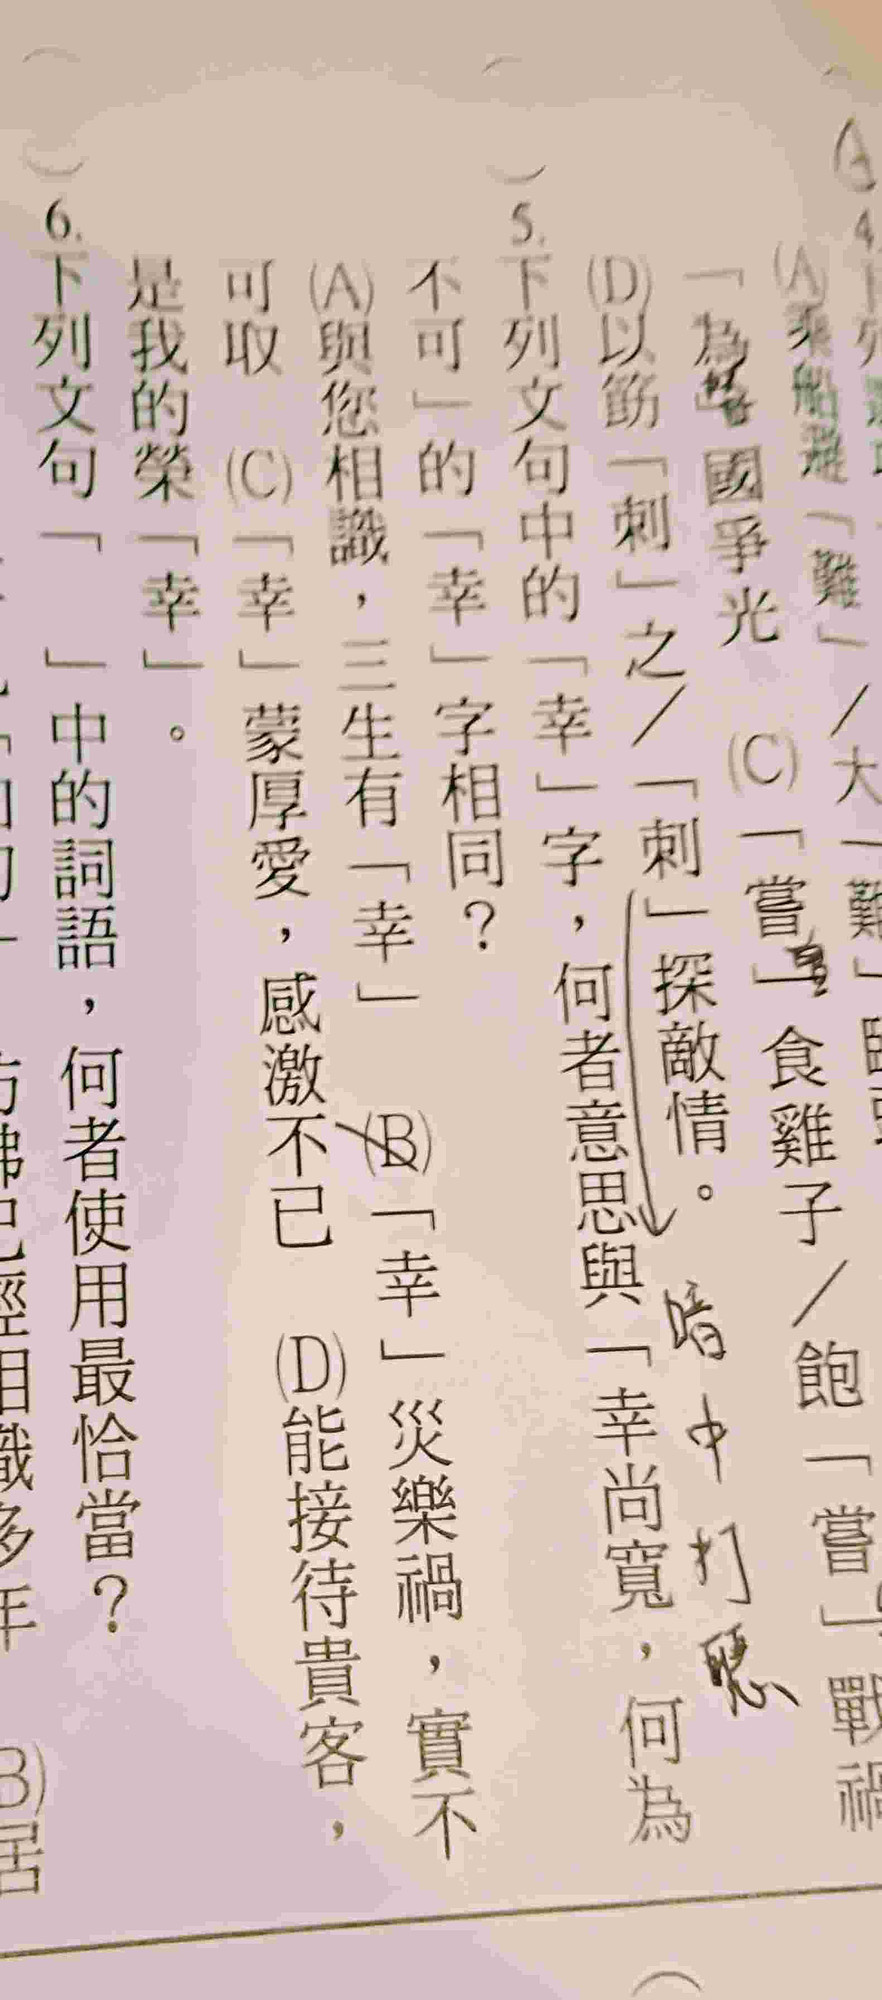 4.下列
(A)乘船遇「難」/大「難」臨頭
「為」國爭光 (C)「嘗」食雞子/飽「嘗」戰禍
(D)以筯「刺」之/「刺」探敵情。暗中打聽
5.下列文句中的「幸」字,何者意思與「幸尚寬,何為
不可」的「幸」字相同?
(A)與您相識,三生有「幸」 (B)「幸」災樂禍,實不
可取 (C)「幸」蒙厚愛,感激不已 (D)能接待貴客,
是我的榮「幸」。
6.下列文句「 」中的詞語,何者使用最恰當?
彷彿已經相識多年 (B)居